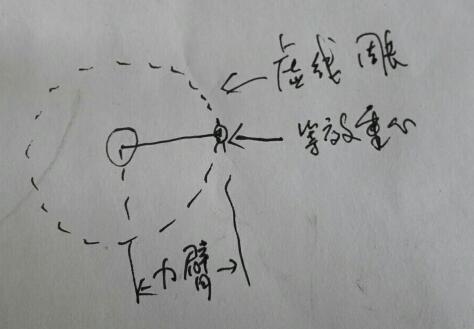 虚线圆
等效重心
力臂